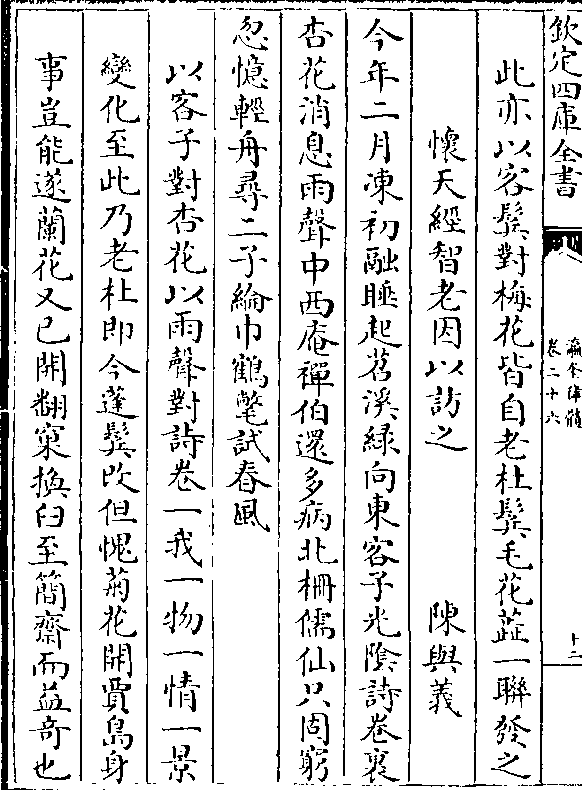 欽定四庫全書
瀛奎律髓
卷二十六
十二
此亦以客鬢對梅花皆自老杜鬢毛花蘂一聯發之
懷天經智老因以訪之 陳與義
今年二月凍初融睡起苕溪緑向東客子光陰詩卷裏
杏花消息雨聲中西庵禪伯還多病北柵儒仙只固窮
忽憶輕舟尋二子綸巾鶴氅試春風
以客子對杏花以雨聲對詩卷一我一物一情一景
變化至此乃老杜即今蓬鬢改但愧菊花開賈島身
事豈能遂蘭花又已開翻窠換臼至簡齋而益奇也